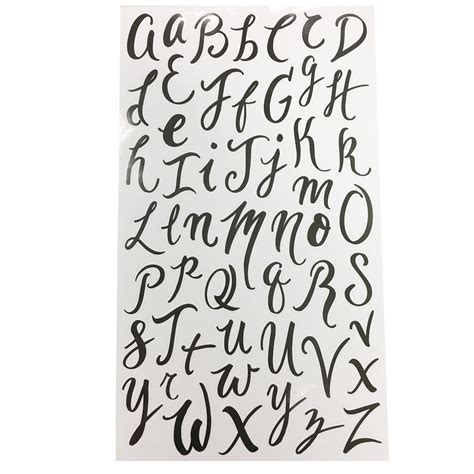 a a B b C c D
d E e F f G g H
h I i J j K k
L l n M N m o O
P p Q q R S
s T t u U V v
y r W w X y z x Z